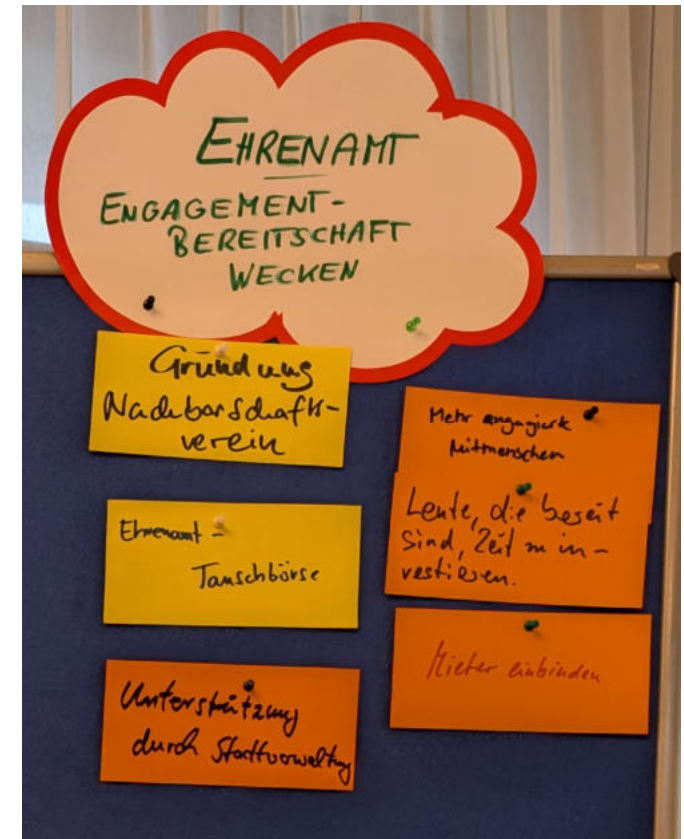 EHRENAMT
ENGAGEMENT-
BEREITSCHAFT
WECKEN
Gründung
Nachbarschafts-
verein
Ehrenamt -
Tauschbörse
Unterstützung
durch Stadtverwaltung
Mehr engagierte
Mitmenschen
Leute, die bereit
sind, Zeit zu in-
vestieren.
Mieter einbinden